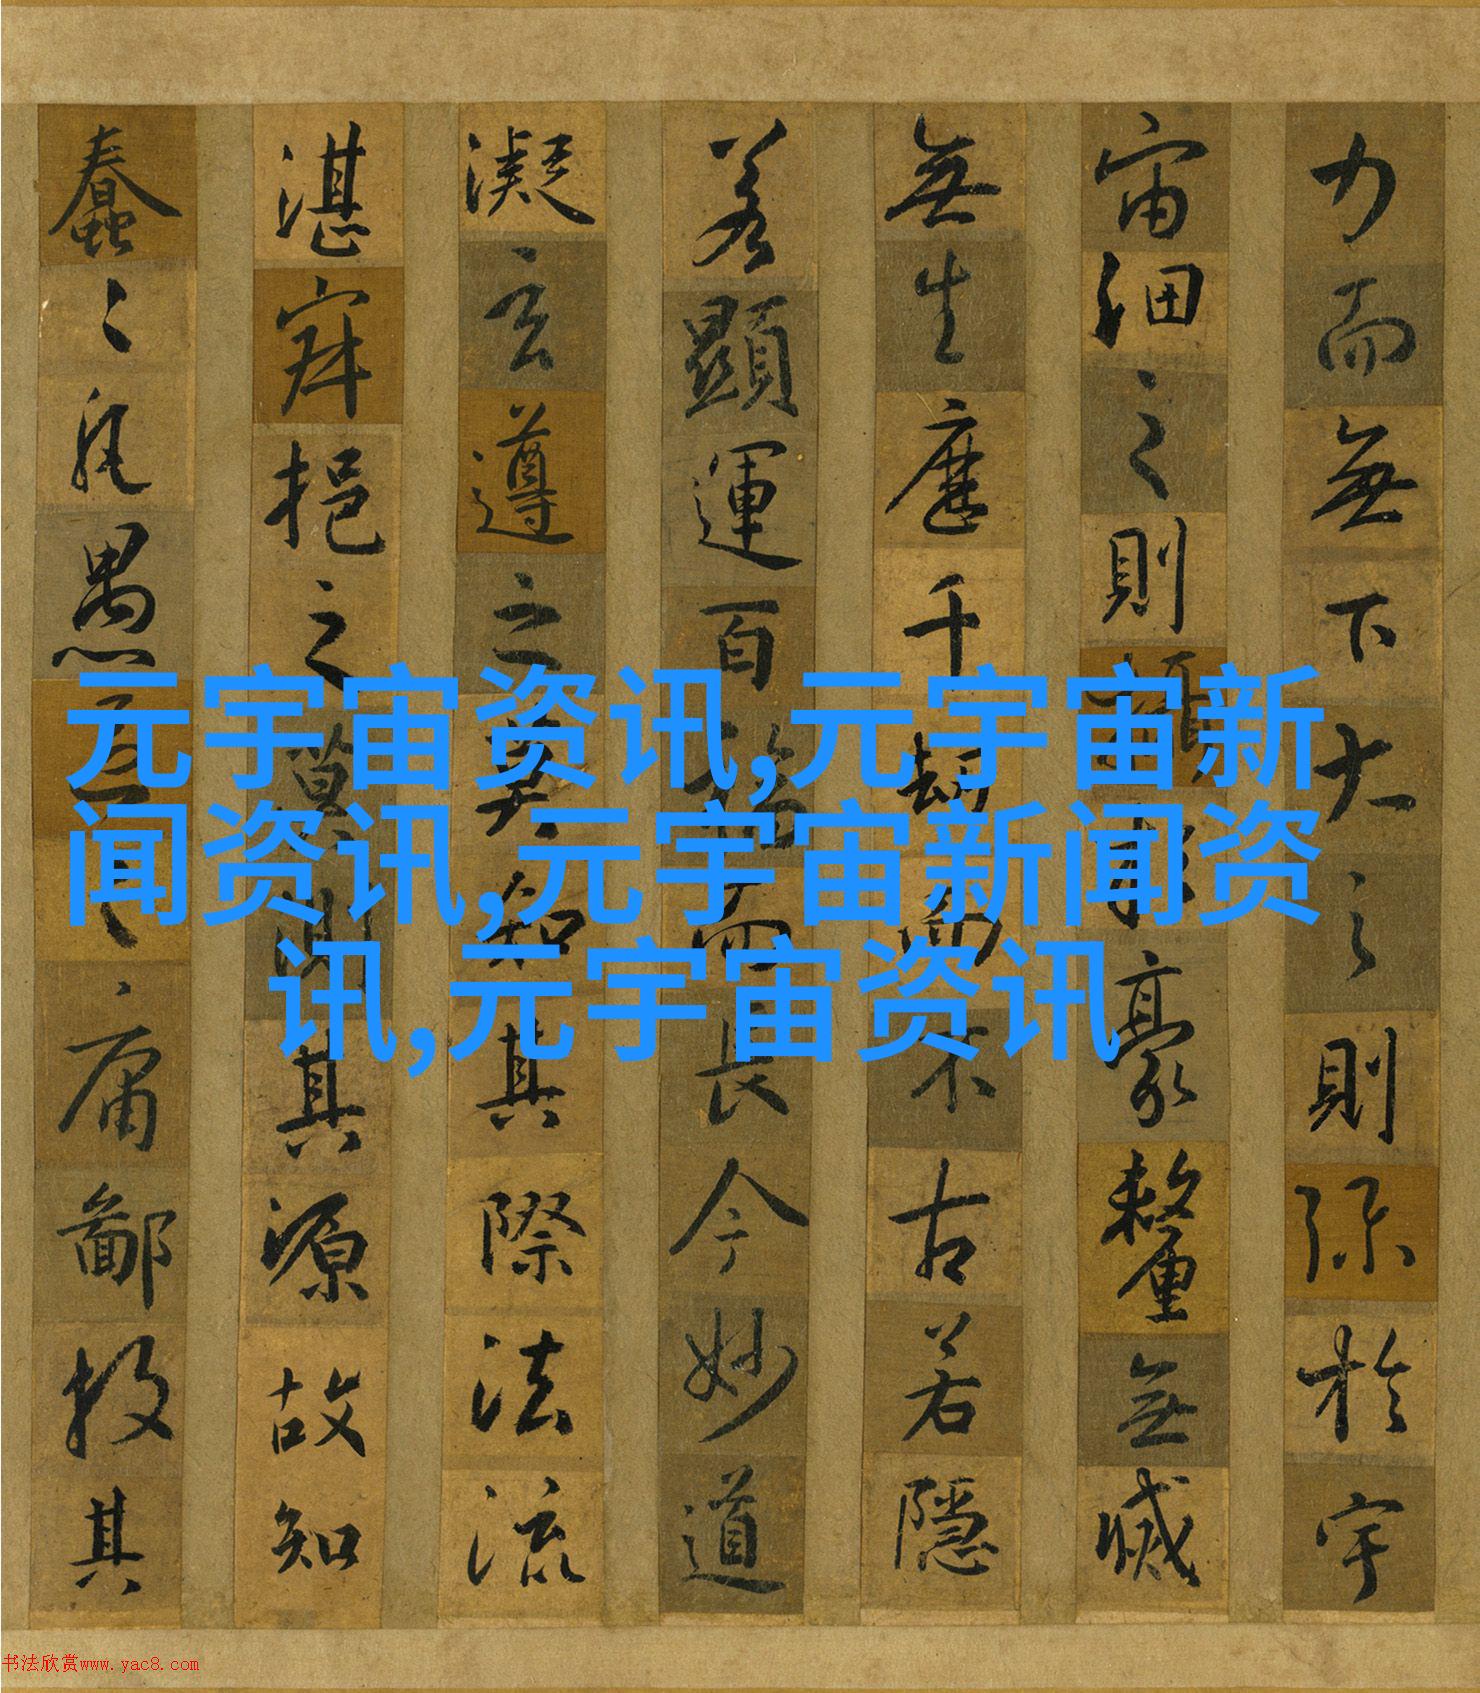 力而無下大之則弥於宇
宙細之則攝於豪釐無滅
無生歷千劫而不古若隱
若顯運百福而長今妙道
凝玄遵之莫知其際法流
湛寂挹之莫測其源故知
蠢〻凡愚區〻庸鄙投其
元宇宙资讯,元宇宙新
闻资讯,元宇宙新闻资
讯,元宇宙资讯
书法欣赏www.yac8.com